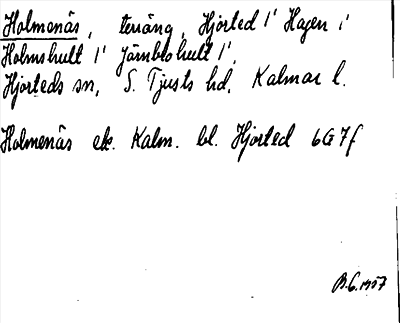 Holmenäs, teräng, Hjorted 1' Hagen 1'
Holmshult 1' Jämbshult 1',
Hjorteds sn, S. Tjusts hd, Kalmar l.
Holmenäs ek. Kalm. bl. Hjorted 6G7f
B.G. 1957